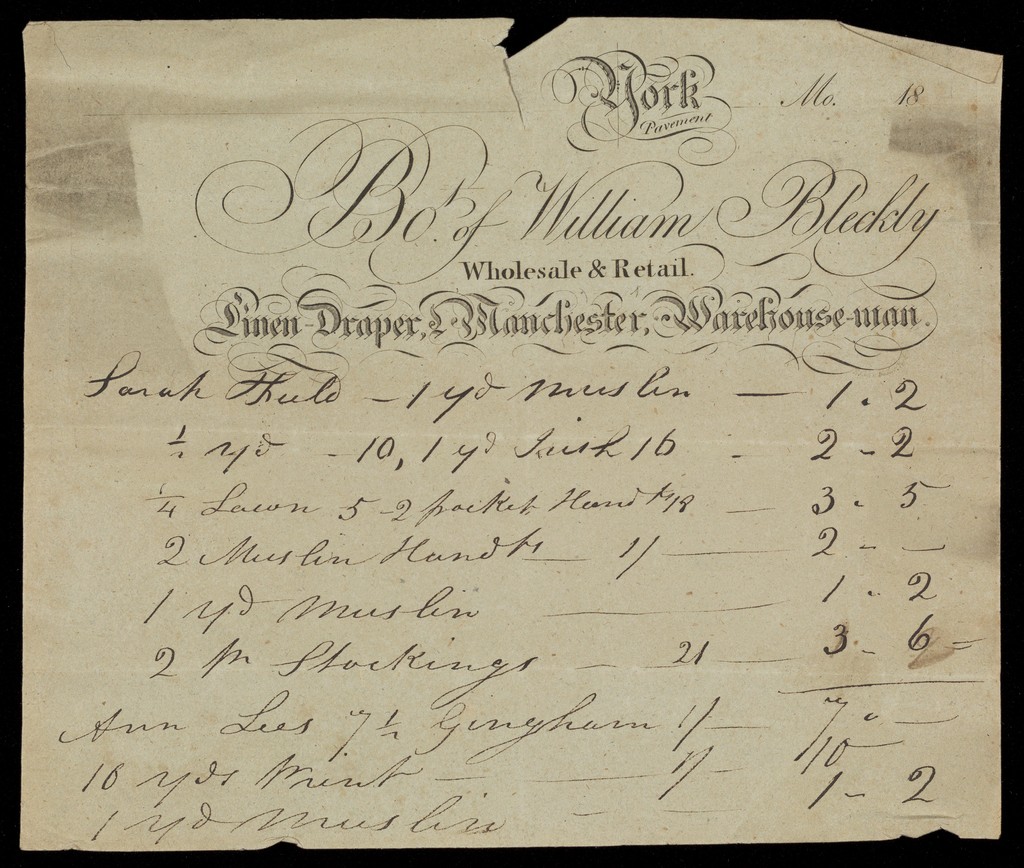 York Mo. 18
Pavement
Bot. of William Bleckly
Wholesale & Retail.
Linen-Draper, & Manchester, Warehouse-man.
Sarah - 1 yd Muslin — 1 . 2
½ yd - 10, 1 yd Irish 16 - 2 - 2
¼ Lawn 5 - 2 pocket Handfs 18 — 3 . 5
2 Muslin Handfs — 1/ — 2 - —
1 yd Muslin — 1 . 2
2 pr Stockings — 21 — 3 - 6 =
Ann Lees 7 ½ Gingham 1/— 7 . —
10 yds Print — 1/— 10 —
1 yd Muslin — 1 - 2